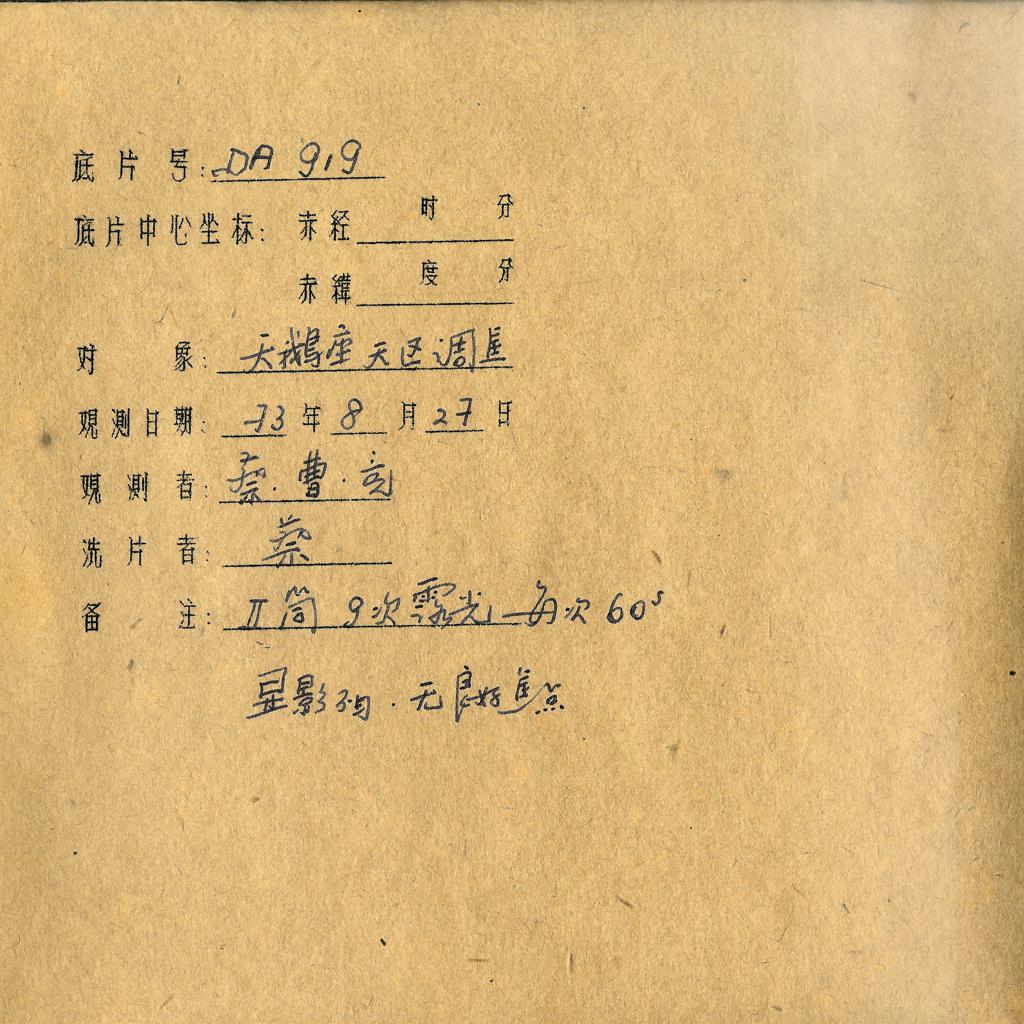 底片号: DA 919
底片中心坐标: 赤经 时 分
赤緯 度 分
对 象: 天鹅座天区调焦
观测日期: 73 年 8 月 27 日
观测者: 蔡·曹·亮
洗片者: 蔡
备 注: II筒 9次露光 每次60s
显影不均·无良好焦点